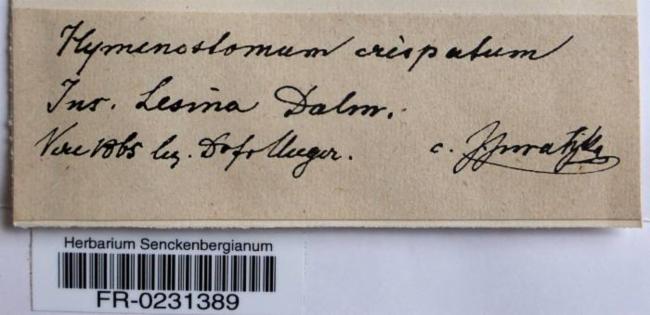 Hymenostomum crispatum
Ins. Lesina Dalm.
Vere 1865 leg. Dr. Unger. c. J. Juratzka
Herbarium Senckenbergianum
FR-0231389